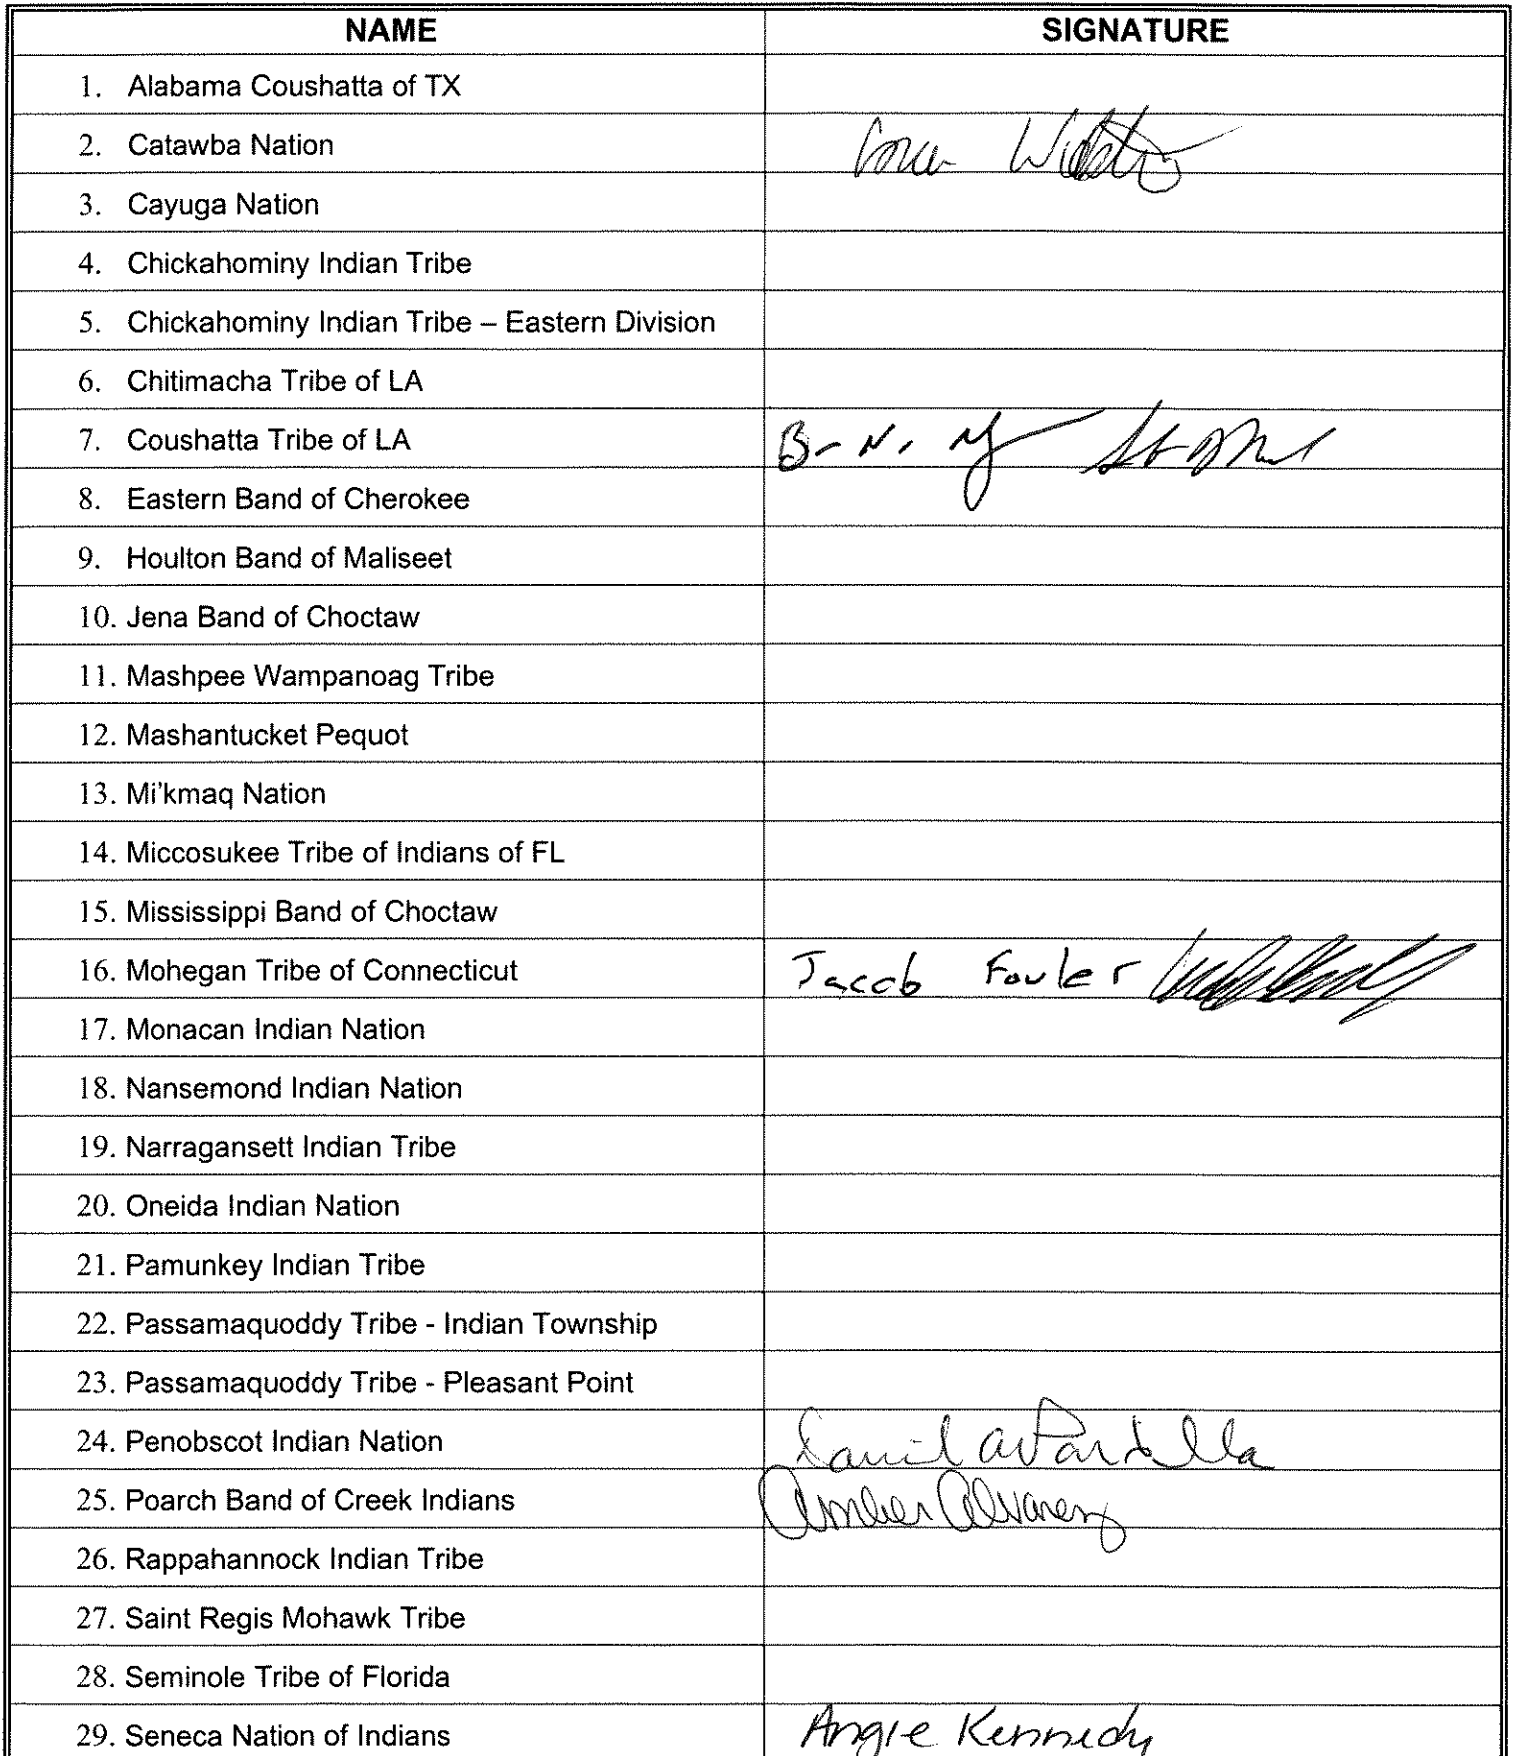 NAME SIGNATURE
1. Alabama Coushatta of TX
2. Catawba Nation
3. Cayuga Nation
4. Chickahominy Indian Tribe
5. Chickahominy Indian Tribe – Eastern Division
6. Chitimacha Tribe of LA
7. Coushatta Tribe of LA
8. Eastern Band of Cherokee
9. Houlton Band of Maliseet
10. Jena Band of Choctaw
11. Mashpee Wampanoag Tribe
12. Mashantucket Pequot
13. Mi'kmaq Nation
14. Miccosukee Tribe of Indians of FL
15. Mississippi Band of Choctaw
16. Mohegan Tribe of Connecticut Jacob Fowler
17. Monacan Indian Nation
18. Nansemond Indian Nation
19. Narragansett Indian Tribe
20. Oneida Indian Nation
21. Pamunkey Indian Tribe
22. Passamaquoddy Tribe - Indian Township
23. Passamaquoddy Tribe - Pleasant Point
24. Penobscot Indian Nation
25. Poarch Band of Creek Indians Amber Alvarez
26. Rappahannock Indian Tribe
27. Saint Regis Mohawk Tribe
28. Seminole Tribe of Florida
29. Seneca Nation of Indians Angie Kennedy